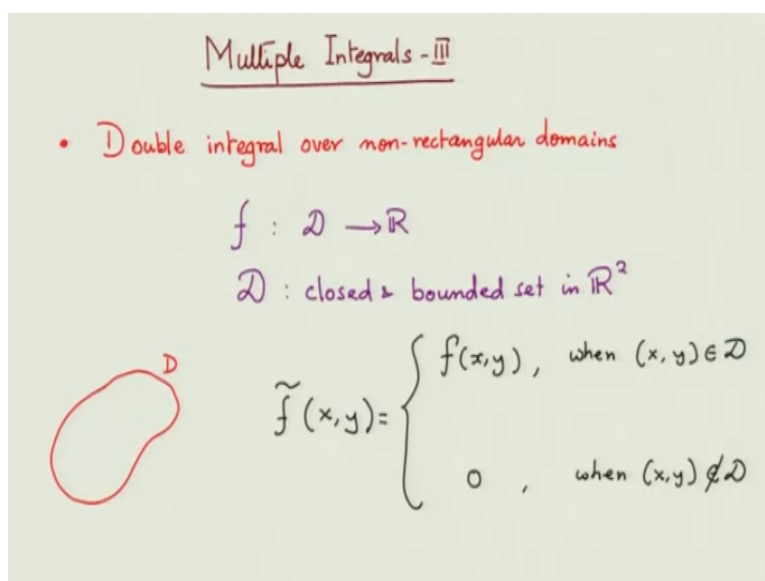 Multiple Integrals - III
• Double integral over non-rectangular domains
f : D → ℝ
D : closed & bounded set in ℝ²
D
f̃ (x,y) = { f(x,y), when (x,y) ∈ D
0 , when (x,y) ∉ D